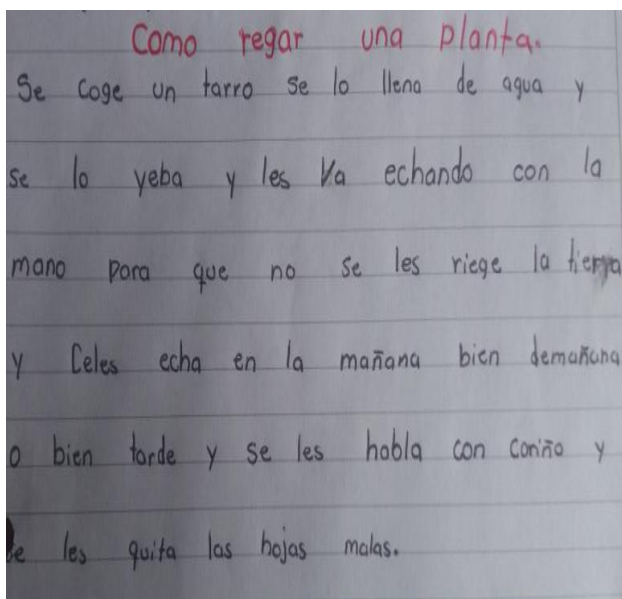 Como regar una planta.
Se coge un tarro se lo llena de agua y
se lo yeba y les va echando con la
mano para que no se les riege la tierra
y Celes echa en la mañana bien demañana
o bien tarde y se les habla con cariño y
se les quita las hojas malas.